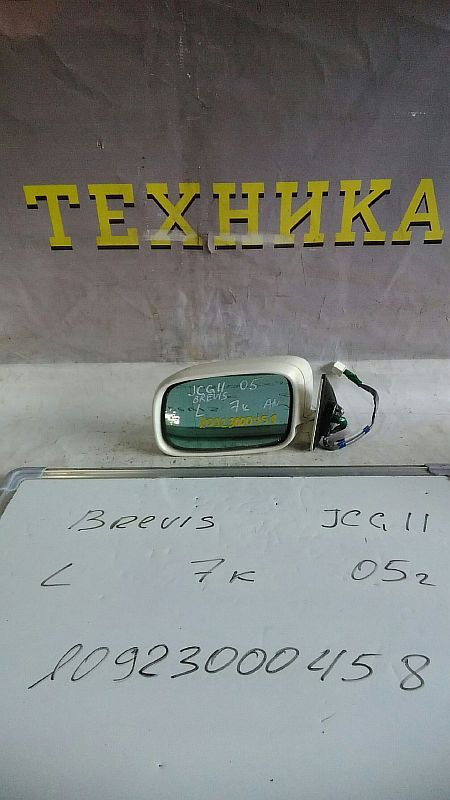 ТЕХНИКА
JCG11 05
BREVIS
L 7к AN
10923000458
Brevis JCG11
L 7к 05г
10923000458